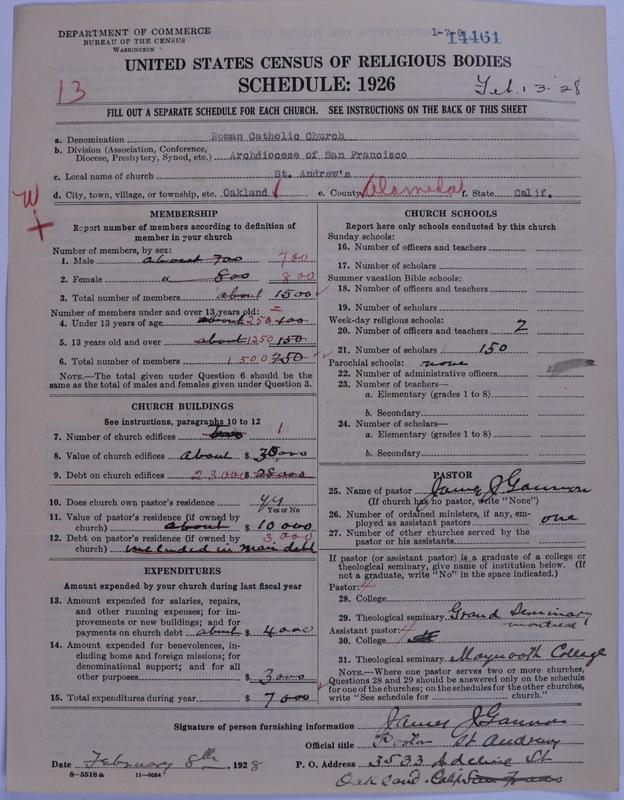 DEPARTMENT OF COMMERCE
BUREAU OF THE CENSUS
WASHINGTON
1-7-0
14461
UNITED STATES CENSUS OF RELIGIOUS BODIES
SCHEDULE: 1926
13
Feb. 13-28
FILL OUT A SEPARATE SCHEDULE FOR EACH CHURCH. SEE INSTRUCTIONS ON THE BACK OF THIS SHEET
a. Denomination Roman Catholic Church
b. Division (Association, Conference,
Diocese, Presbytery, Synod, etc.) Archdiocese of San Francisco
c. Local name of church St. Andrew's
d. City, town, village, or township, etc. Oakland e. County Alameda f. State Calif.
W
MEMBERSHIP
Report number of members according to definition of
member in your church
Number of members, by sex:
1. Male about 700 700
2. Female " 800 800
3. Total number of members about 1500
Number of members under and over 13 years old:
4. Under 13 years of age about 250 100
5. 13 years old and over about 1250 150
6. Total number of members 1,500 250
NOTE.—The total given under Question 6 should be
same as the total of males and females given under Question 3.
CHURCH BUILDINGS
See instructions, paragraphs 10 to 12
7. Number of church edifices 1
8. Value of church edifices about $ 35,000
9. Debt on church edifices 23,000 $ 28000
10. Does church own pastor's residence
Yes or No
11. Value of pastor's residence (if owned by
church) about $ 10000
12. Debt on pastor's residence (if owned by 3,000
church) included in main debt
EXPENDITURES
Amount expended by your church during last fiscal year
13. Amount expended for salaries, repairs,
and other running expenses; for im-
provements or new buildings; and for
payments on church debt about $ 4000
14. Amount expended for benevolences, in-
cluding home and foreign missions; for
denominational support; and for all
other purposes $ 3000
15. Total expenditures during year $ 7000
CHURCH SCHOOLS
Report here only schools conducted by this church
Sunday schools:
16. Number of officers and teachers
17. Number of scholars
Summer vacation Bible schools:
18. Number of officers and teachers
19. Number of scholars
Week-day religious schools:
20. Number of officers and teachers 7
21. Number of scholars 150
Parochial schools: none
22. Number of administrative officers
23. Number of teachers—
a. Elementary (grades 1 to 8)
b. Secondary
24. Number of scholars—
a. Elementary (grades 1 to 8)
b. Secondary
PASTOR
25. Name of pastor James J Gannon
(If church has no pastor, write "None")
26. Number of ordained ministers, if any, em-
ployed as assistant pastors one
27. Number of other churches served by the
pastor or his assistants
If pastor (or assistant pastor) is a graduate of a college or
theological seminary, give name of institution below. (If
not a graduate, write "No" in the space indicated.)
Pastor: 4
28. College
29. Theological seminary Grand Seminary
Montreal
Assistant pastor: 4
30. College
31. Theological seminary Maynooth College
NOTE.—Where one pastor serves two or more churches,
Questions 28 and 29 should be answered only on the schedule
for one of the churches; on the schedules for the other churches,
write "See schedule for church."
Signature of person furnishing information James J Gannon
Official title Pastor St Andrews
Date February 8th, 1928 P. O. Address 3533 Adeline St
8-5518 a 11-9084
Oakland Calif San Fran